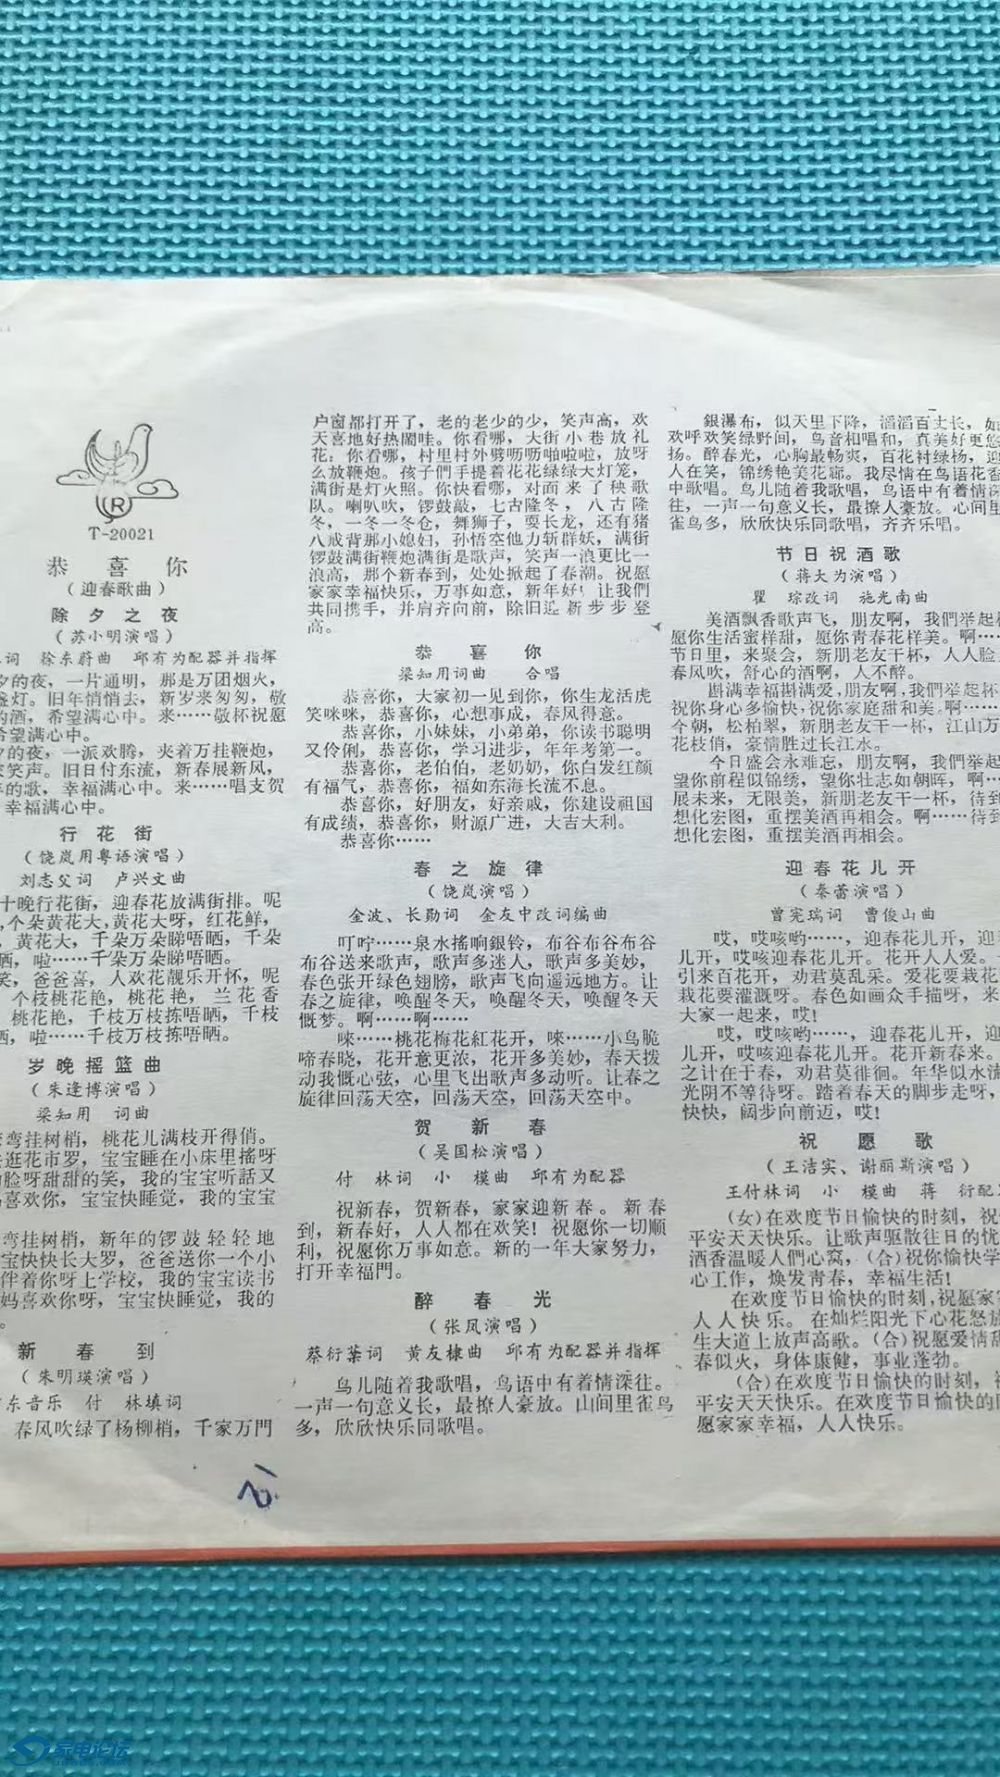 R
T-20021
恭喜你
(迎春歌曲)
除夕之夜
(苏小明演唱)
词 徐东蔚曲 邱有为配器并指挥
夕的夜，一片通明，那是万团烟火，
盏灯。旧年悄悄去，新岁来匆匆，敬
的酒，希望满心中。来……敬杯祝愿
希望满心中。
夕的夜，一派欢腾，夹着万挂鞭炮，
笑声。旧日付东流，新春展新风，
的歌，幸福满心中。来……唱支贺
幸福满心中。
行花街
(饶岚用粤语演唱)
刘志父词 卢兴文曲
十晚行花街，迎春花放满街排。呢
个朵黄花大，黄花大呀，红花鲜，
，黄花大，千朵万朵睇唔晒，千朵
晒，啦……千朵万朵睇唔晒。
笑，爸爸喜，人欢花靓乐开怀，呢
个枝桃花艳，桃花艳，兰花香
桃花艳，千枝万枝拣唔晒，千枝
晒，啦……千枝万枝拣唔晒。
岁晚摇篮曲
(朱逢博演唱)
梁知用 词曲
弯挂树梢，桃花儿满枝开得俏。
逛花市罗，宝宝睡在小床里摇呀
脸呀甜甜的笑，我的宝宝听話又
喜欢你，宝宝快睡觉，我的宝宝
弯挂树梢，新年的锣鼓轻轻地
宝快快长大罗，爸爸送你一个小
伴着你呀上学校，我的宝宝读书
妈喜欢你呀，宝宝快睡觉，我的
。
新春到
(朱明瑛演唱)
东音乐 付 林填词
春风吹绿了杨柳梢，千家万門
12
户窗都打开了，老的老少的少，笑声高，欢
天喜地好热闹哇。你看哪，大街小巷放礼
花；你看哪，村里村外劈呖呖啪啦啦，放呀
么放鞭炮。孩子們手提着花花绿绿大灯笼，
满街是灯火照。你快看哪，对面来了秧歌
队。喇叭吹，锣鼓敲，七古隆冬，八古隆
冬，一冬一冬仓，舞狮子，耍长龙，还有猪
八戒背那小媳妇，孙悟空他力斩群妖，满街
锣鼓满街鞭炮满街是歌声，笑声一浪更比一
浪高，那个新春到，处处掀起了春潮。祝愿
家家幸福快乐，万事如意，新年好！让我們
共同携手，并肩齐向前，除旧迎新步步登
高。
恭喜你
梁知用词曲 合唱
恭喜你，大家初一见到你，你生龙活虎
笑咪咪，恭喜你，心想事成，春风得意。
恭喜你，小妹妹，小弟弟，你读书聪明
又伶俐，恭喜你，学习进步，年年考第一。
恭喜你，老伯伯，老奶奶，你白发红颜
有福气，恭喜你，福如东海长流不息。
恭喜你，好朋友，好亲戚，你建设祖国
有成绩，恭喜你，财源广进，大吉大利。
恭喜你……
春之旋律
(饶岚演唱)
金波、长勋词 金友中改词编曲
叮咛……泉水搖响銀铃，布谷布谷布谷
布谷送来歌声，歌声多迷人，歌声多美妙，
春色张开绿色翅膀，歌声飞向遥远地方。让
春之旋律，唤醒冬天，唤醒冬天，唤醒冬天
慨梦。啊……啊……
唻……桃花梅花紅花开，唻……小鸟脆
啼春晓，花开意更浓，花开多美妙，春天拨
动我慨心弦，心里飞出歌声多动听。让春之
旋律回荡天空，回荡天空，回荡天空中。
贺新春
(吴国松演唱)
付 林词 小 模曲 邱有为配器
祝新春，贺新春，家家迎新春。新春
到，新春好，人人都在欢笑！祝愿你一切顺
利，祝愿你万事如意。新的一年大家努力，
打开幸福門。
醉春光
(张凤演唱)
蔡衍棻词 黄友棣曲 邱有为配器并指挥
鸟儿随着我歌唱，鸟语中有着情深往。
一声一句意义长，最撩人豪放。山间里雀鸟
多，欣欣快乐同歌唱。
銀瀑布，似天里下降，滔滔百丈长，如
欢呼欢笑绿野间，鸟音相唱和，真美好更悠
扬。醉春光，心胸最畅爽，百花衬绿杨，迎
人在笑，锦绣艳美花廊。我尽情在鸟语花香
中歌唱。鸟儿随着我歌唱，鸟语中有着情深
往，一声一句意义长，最撩人豪放。心间里
雀鸟多，欣欣快乐同歌唱，齐齐乐唱。
节日祝酒歌
(蒋大为演唱)
瞿 琮改词 施光南曲
美酒飘香歌声飞，朋友啊，我們举起杯
愿你生活蜜样甜，愿你青春花样美。啊……
节日里，来聚会，新朋老友干杯，人人脸上
春风吹，舒心的酒啊，人不醉。
斟满幸福斟满爱，朋友啊，我們举起杯
祝你身心多愉快，祝你家庭甜和美。啊……
今朝，松柏翠，新朋老友干一杯，江山万
花枝俏，豪情胜过长江水。
今日盛会永难忘，朋友啊，我們举起
望你前程似锦绣，望你壮志如朝晖，啊…
展未来，无限美，新朋老友干一杯，待到
想化宏图，重摆美酒再相会。啊……待到
想化宏图，重摆美酒再相会。
迎春花儿开
(秦蕾演唱)
曾宪瑞词 曹俊山曲
哎，哎咳哟……，迎春花儿开，迎
儿开，哎咳迎春花儿开。花开人人爱。
引来百花开，劝君莫乱采。爱花要栽花
栽花要灌溉呀。春色如画众手描呀，来
大家一起来，哎！
哎，哎咳哟……，迎春花儿开，迎
儿开，哎咳迎春花儿开。花开新春来。
之计在于春，劝君莫徘徊。年华似水流
光阴不等待呀。踏着春天的脚步走呀，
快快，阔步向前迈，哎！
祝愿歌
(王洁实、谢丽斯演唱)
王付林词 小 模曲 蒋 衍配
(女)在欢度节日愉快的时刻，祝
平安天天快乐。让歌声驱散往日的忧
酒香温暖人們心窝，(合)祝你愉快学
心工作，焕发青春，幸福生活！
在欢度节日愉快的时刻，祝愿家
人人快乐。在灿烂阳光下心花怒放
生大道上放声高歌。(合)祝愿爱情甜
春似火，身体康健，事业蓬勃。
(合)在欢度节日愉快的时刻，祝
平安天天快乐。在欢度节日愉快的时
愿家家幸福，人人快乐。
家电论坛